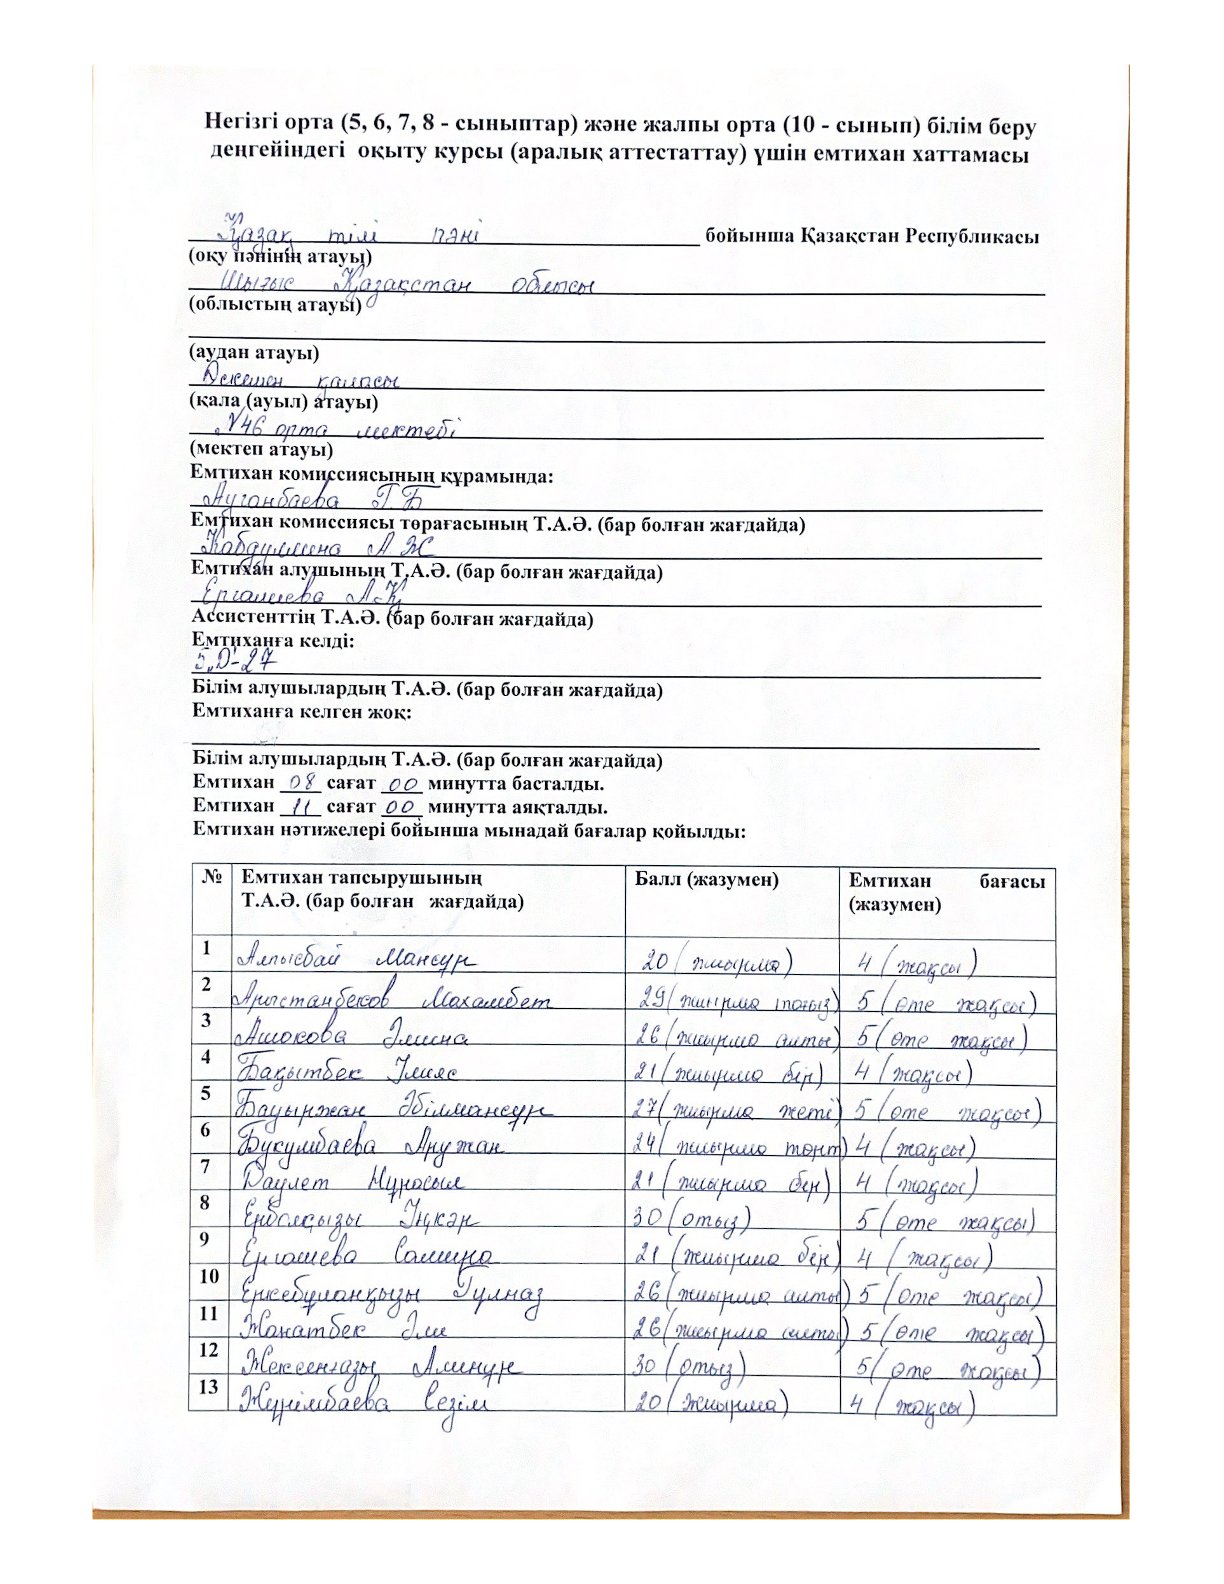 Негізгі орта (5, 6, 7, 8 - сыныптар) және жалпы орта (10 - сынып) білім беру
деңгейіндегі оқыту курсы (аралық аттестаттау) үшін емтихан хаттамасы
Қазақ тілі пәні бойынша Қазақстан Республикасы
(оқу пәнінің атауы)
Шығыс Қазақстан облысы
(облыстың атауы)
(аудан атауы)
Өскемен қаласы
(қала (ауыл) атауы)
№46 орта мектебі
(мектеп атауы)
Емтихан комиссиясының құрамында:
Ауганбаева Г.Б
Емтихан комиссиясы төрағасының Т.А.Ә. (бар болған жағдайда)
Кабдуллина А Ж
Емтихан алушының Т.А.Ә. (бар болған жағдайда)
Ергалиева А.Қ
Ассистенттің Т.А.Ә. (бар болған жағдайда)
Емтиханға келді:
5"D"-27
Білім алушылардың Т.А.Ә. (бар болған жағдайда)
Емтиханға келген жоқ:
Білім алушылардың Т.А.Ә. (бар болған жағдайда)
Емтихан 08 сағат 00 минутта басталды.
Емтихан 11 сағат 00 минутта аяқталды.
Емтихан нәтижелері бойынша мынадай бағалар қойылды:
№ Емтихан тапсырушының Балл (жазумен) Емтихан бағасы
Т.А.Ә. (бар болған жағдайда) (жазумен)
1 Алпысбай Мансұр 20 (жиырма) 4 (жақсы)
2 Арыстанбеков Махамбет 29 (жиырма тоғыз) 5 (өте жақсы)
3 Ашокова Әмина 26 (жиырма алты) 5 (өте жақсы)
4 Бақытбек Ілияс 21 (жиырма бір) 4 (жақсы)
5 Бауыржан Әбілмансұр 27 (жиырма жеті) 5 (өте жақсы)
6 Букумбаева Аружан 24 (жиырма төрт) 4 (жақсы)
7 Даулет Нұрасыл 21 (жиырма бір) 4 (жақсы)
8 Ерболқызы Іңкәр 30 (отыз) 5 (өте жақсы)
9 Ергашева Самира 21 (жиырма бір) 4 (жақсы)
10 Еркебұланқызы Гүлназ 26 (жиырма алты) 5 (өте жақсы)
11 Жанатбек Әли 26 (жиырма алты) 5 (өте жақсы)
12 Жексенғазы Алинұр 30 (отыз) 5 (өте жақсы)
13 Жүрімбаева Сезім 20 (жиырма) 4 (жақсы)